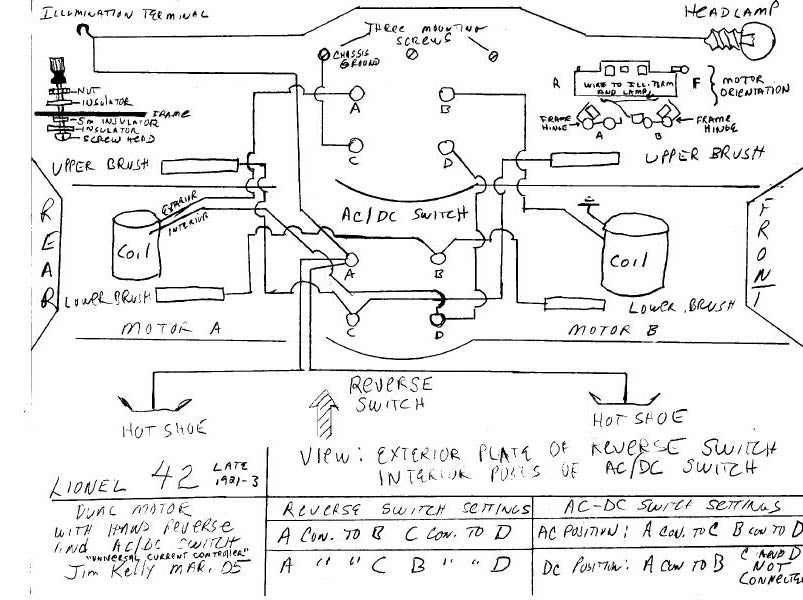 ILLUMINATION TERMINAL
HEADLAMP
THREE MOUNTING
SCREWS
CHASSIS
GROUND
NUT
INSULATOR
FRAME
SM INSULATOR
INSULATOR
SCREW HEAD
R
WIRE TO ILL. TERM
AND LAMP
F
MOTOR
ORIENTATION
FRAME
HINGE
A
B
FRAME
HINGE
A
B
C
D
UPPER BRUSH
UPPER BRUSH
AC/DC SWITCH
REAR
EXTERIOR
INTERIOR
COIL
COIL
FRONT
A
B
C
D
LOWER BRUSH
LOWER BRUSH
MOTOR A
MOTOR B
REVERSE
SWITCH
HOT SHOE
HOT SHOE
VIEW: EXTERIOR PLATE OF REVERSE SWITCH
INTERIOR POSTS OF AC/DC SWITCH
LIONEL 42 LATE
1921-3
DUAL MOTOR
WITH HAND REVERSE
AND AC/DC SWITCH
"UNIVERSAL CURRENT CONTROLLER"
Jim Kelly MAR. 05
REVERSE SWITCH SETTINGS
A CON. TO B C CON. TO D
A " " C B " " D
AC-DC SWITCH SETTINGS
AC POSITION: A CON. TO C B CON TO D
DC POSITION: A CON TO B C AND D
NOT
CONNECTED